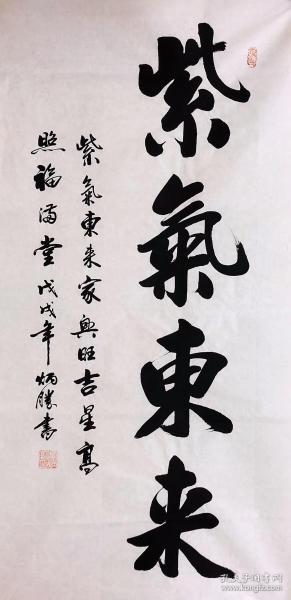 紫氣東来
紫氣東来家興旺吉星高
照福满堂戊戌年炳勝書
孔夫子旧书网
www.kongfz.com